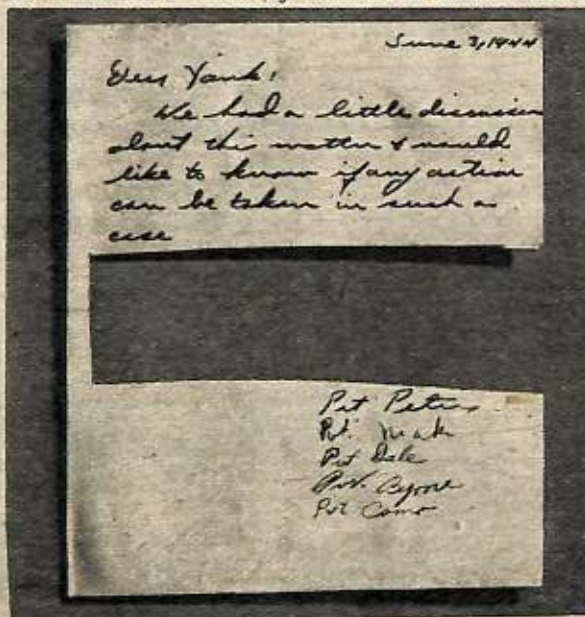 June 3, 1944
Dear Yank:
We had a little discussion
about this matter & would
like to know if any action
can be taken in such a
case
Pvt Peters
Pvt.
Pvt Dale
Pvt. Byrne
Pvt Como